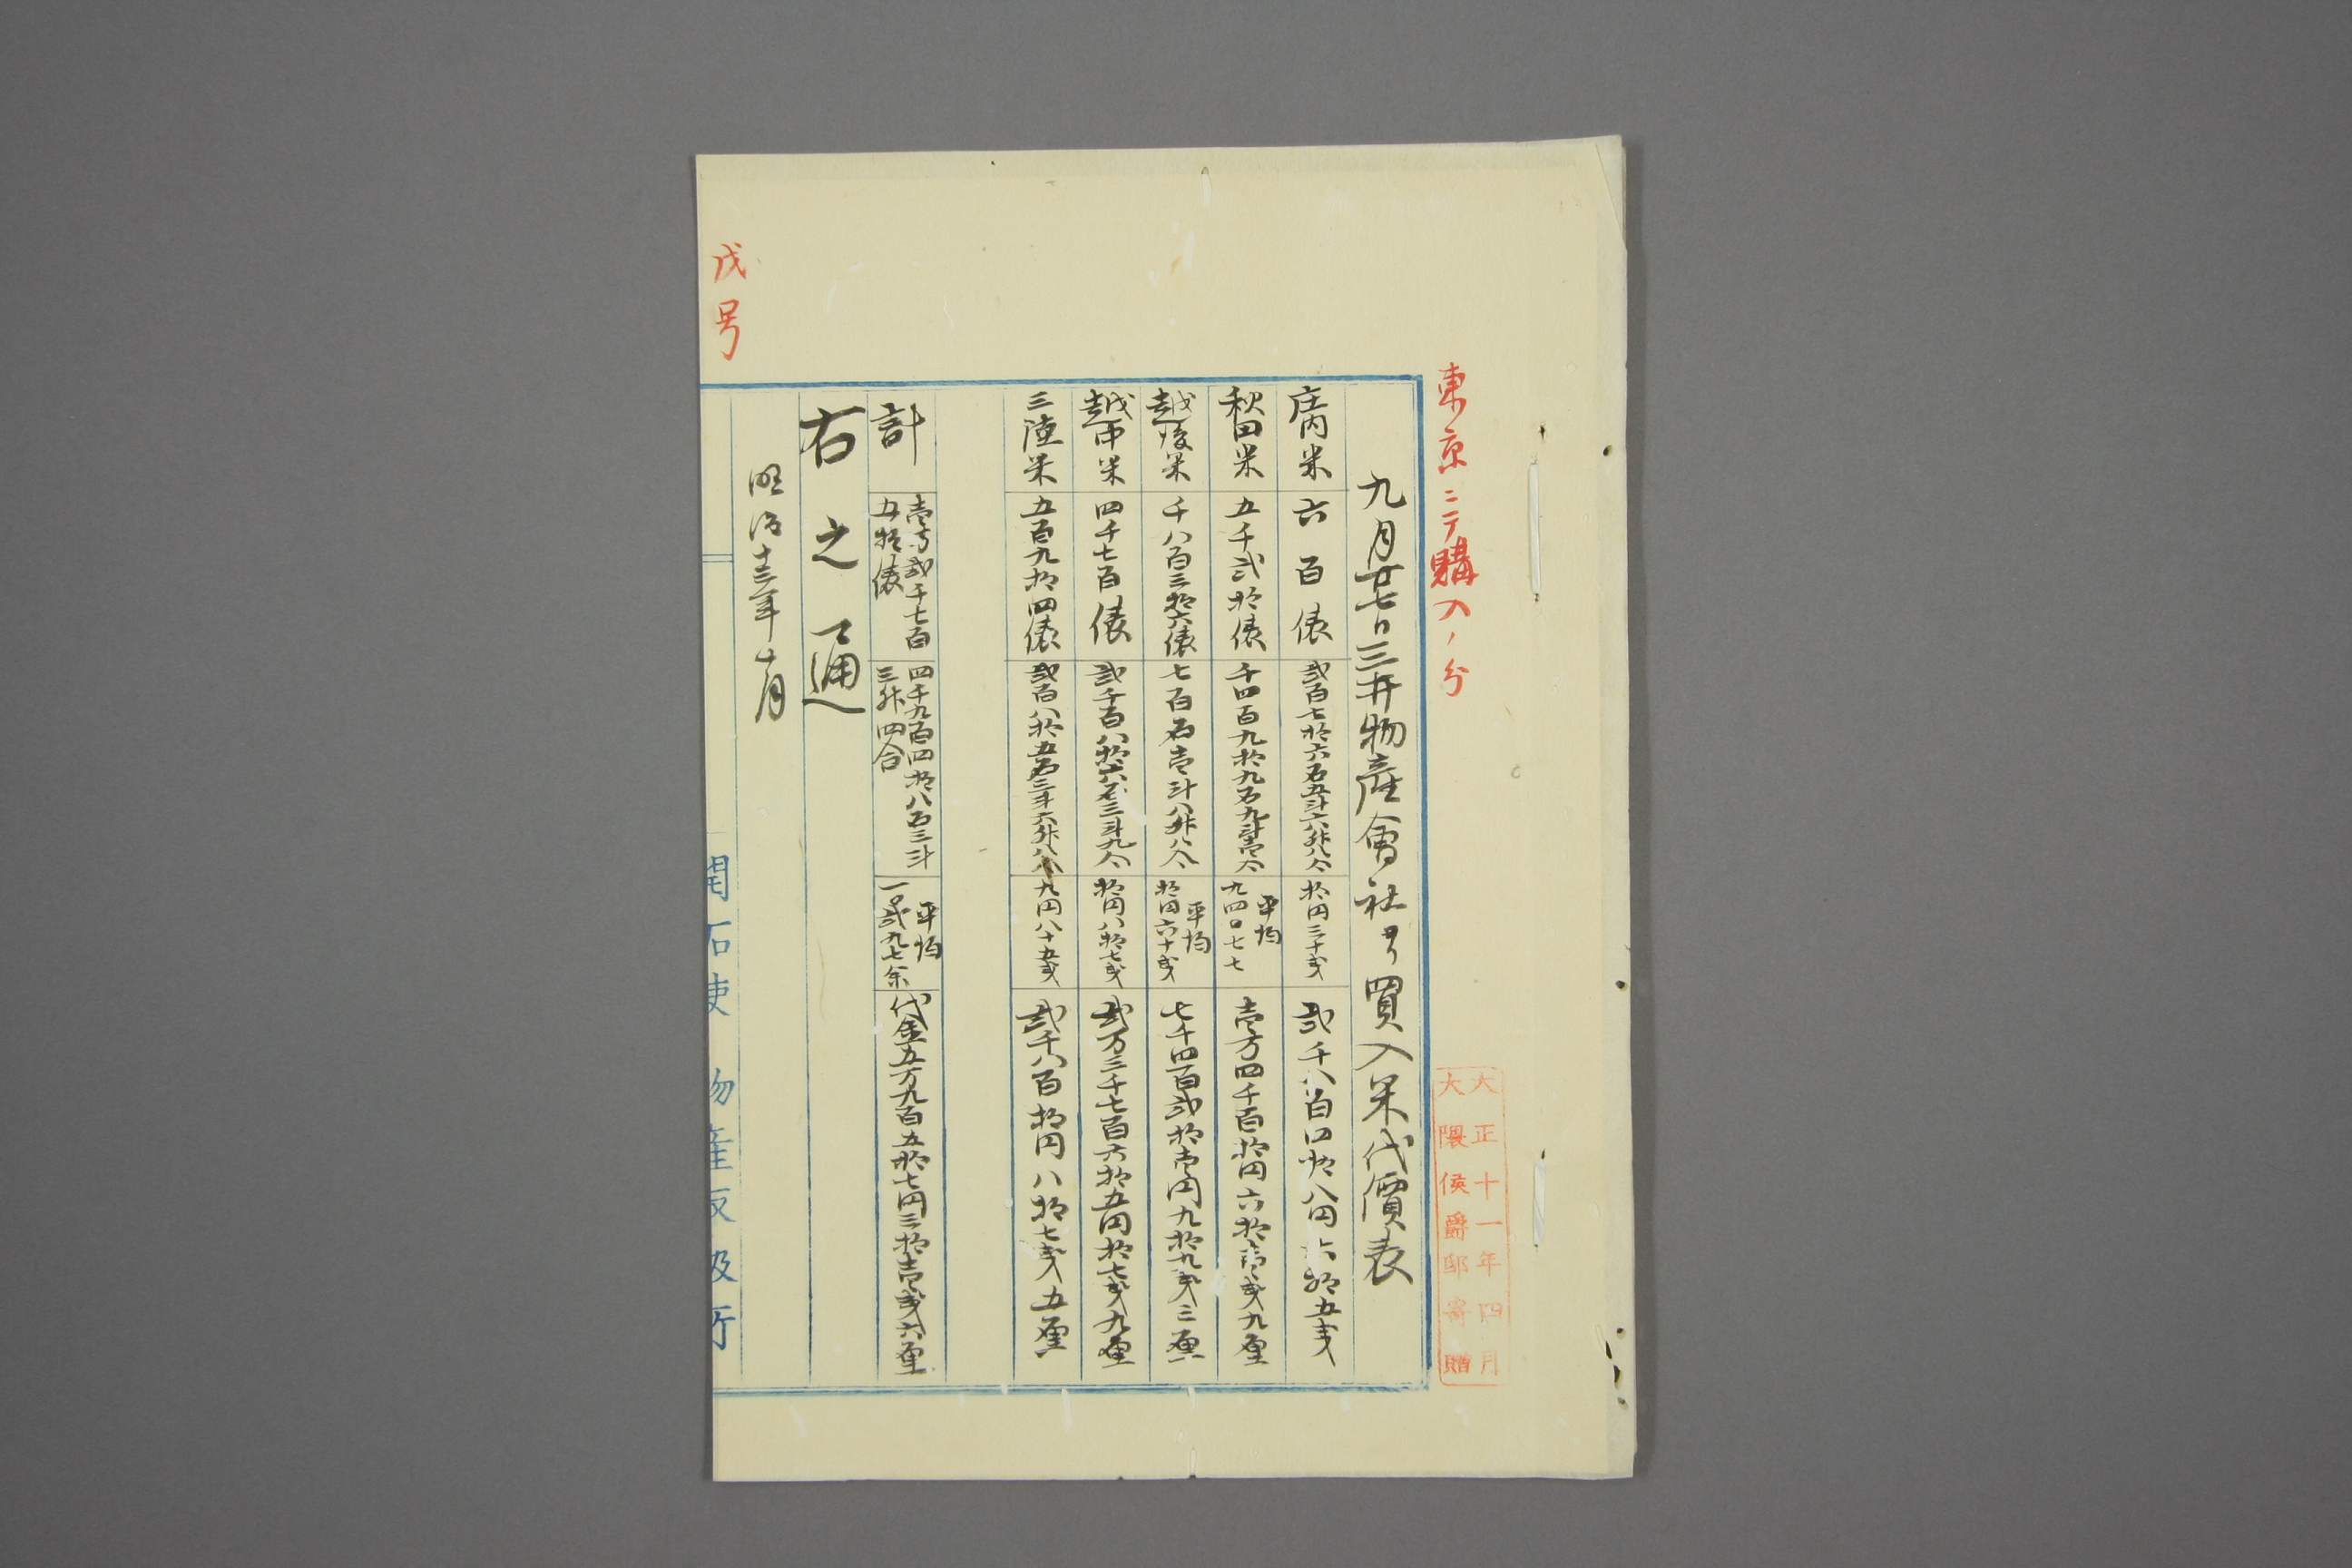 東京ニテ購入ノ分
大正十一年四月
大隈侯爵邸寄贈
九月廿七日三井物産會社ヨリ買入米代價表
庄内米 六百俵 弐百七拾六石五斗六升八合 拾円三十戔 弐千八百四拾八円六拾五戔
秋田米 五千弐拾俵 千四百九拾九石九斗壱合 平均九四〇七七 壱万四千百拾円六拾壱戔九厘
越後米 千八百三拾六俵 七百石壱斗八升八合 平均拾円六十戔 七千四百弐拾壱円九拾九戔三厘
越中米 四千七百俵 弐千百八拾六石三斗九合 拾円八拾七戔 弐万三千七百六拾五円拾七戔九厘
三陸米 五百九拾四俵 弐百八拾五石三斗六升八合 九円八十五戔 弐千八百拾円八拾七戔五厘
計 壱万弐千七百五拾俵 四千九百四拾八石三斗三升四合 平均一〇弐九七余 代金五万九百五拾七円三拾壱戔六厘
右之通
明治十三年十月
戊号
開石使 物産取扱所